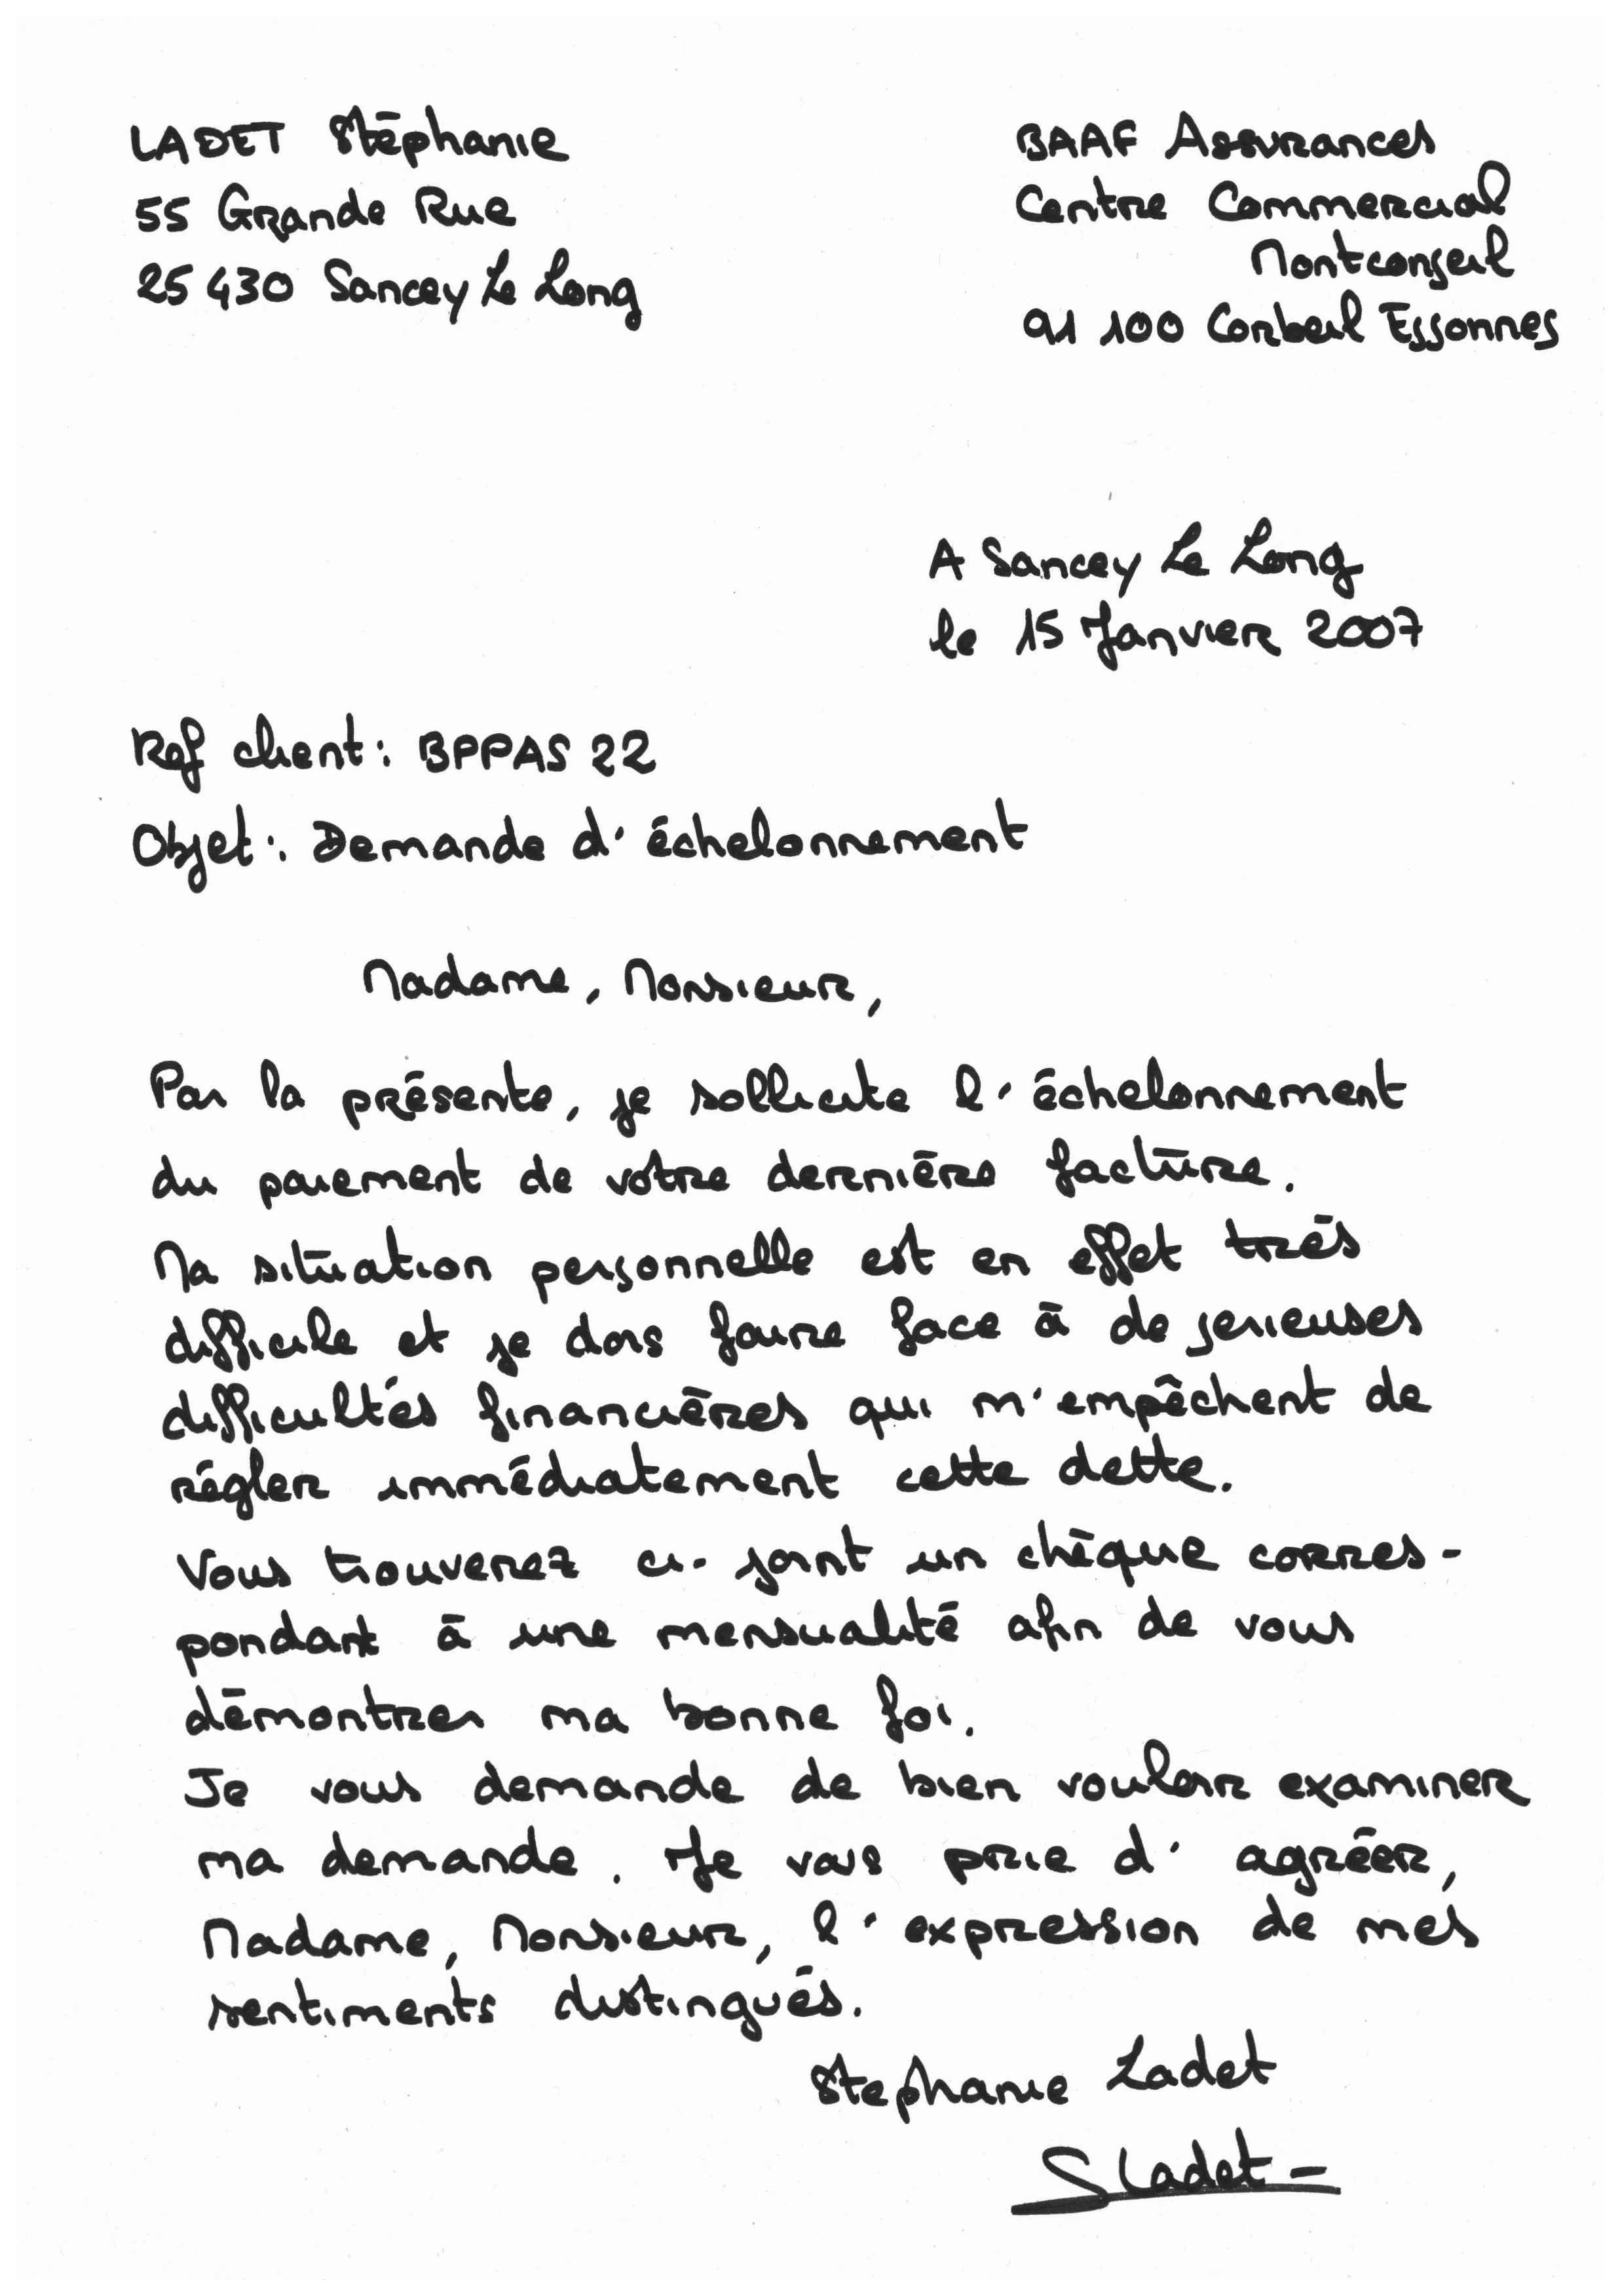 LADET Stéphanie
55 Grande Rue
25 430 Sancey Le Long
BAAF Assurances
Centre Commercial
Montconseil
91 100 Corbeil Essonnes
A Sancey Le Long
le 15 Janvier 2007
Ref client : BPPAS 22
Objet : Demande d'échelonnement
Madame, Monsieur,
Par la présente, je sollicite l'échelonnement
du paiement de votre dernière facture.
Ma situation personnelle est en effet très
difficile et je dois faire face à de serieuses
difficultés financières qui m'empêchent de
régler immédiatement cette dette.
Vous trouverez ci-joint un chèque corres-
pondant à une mensualité afin de vous
démontrer ma bonne foi.
Je vous demande de bien vouloir examiner
ma demande. Je vous prie d'agréer,
Madame, Monsieur, l'expression de mes
sentiments distingués.
Stephanie Ladet
SLadet -